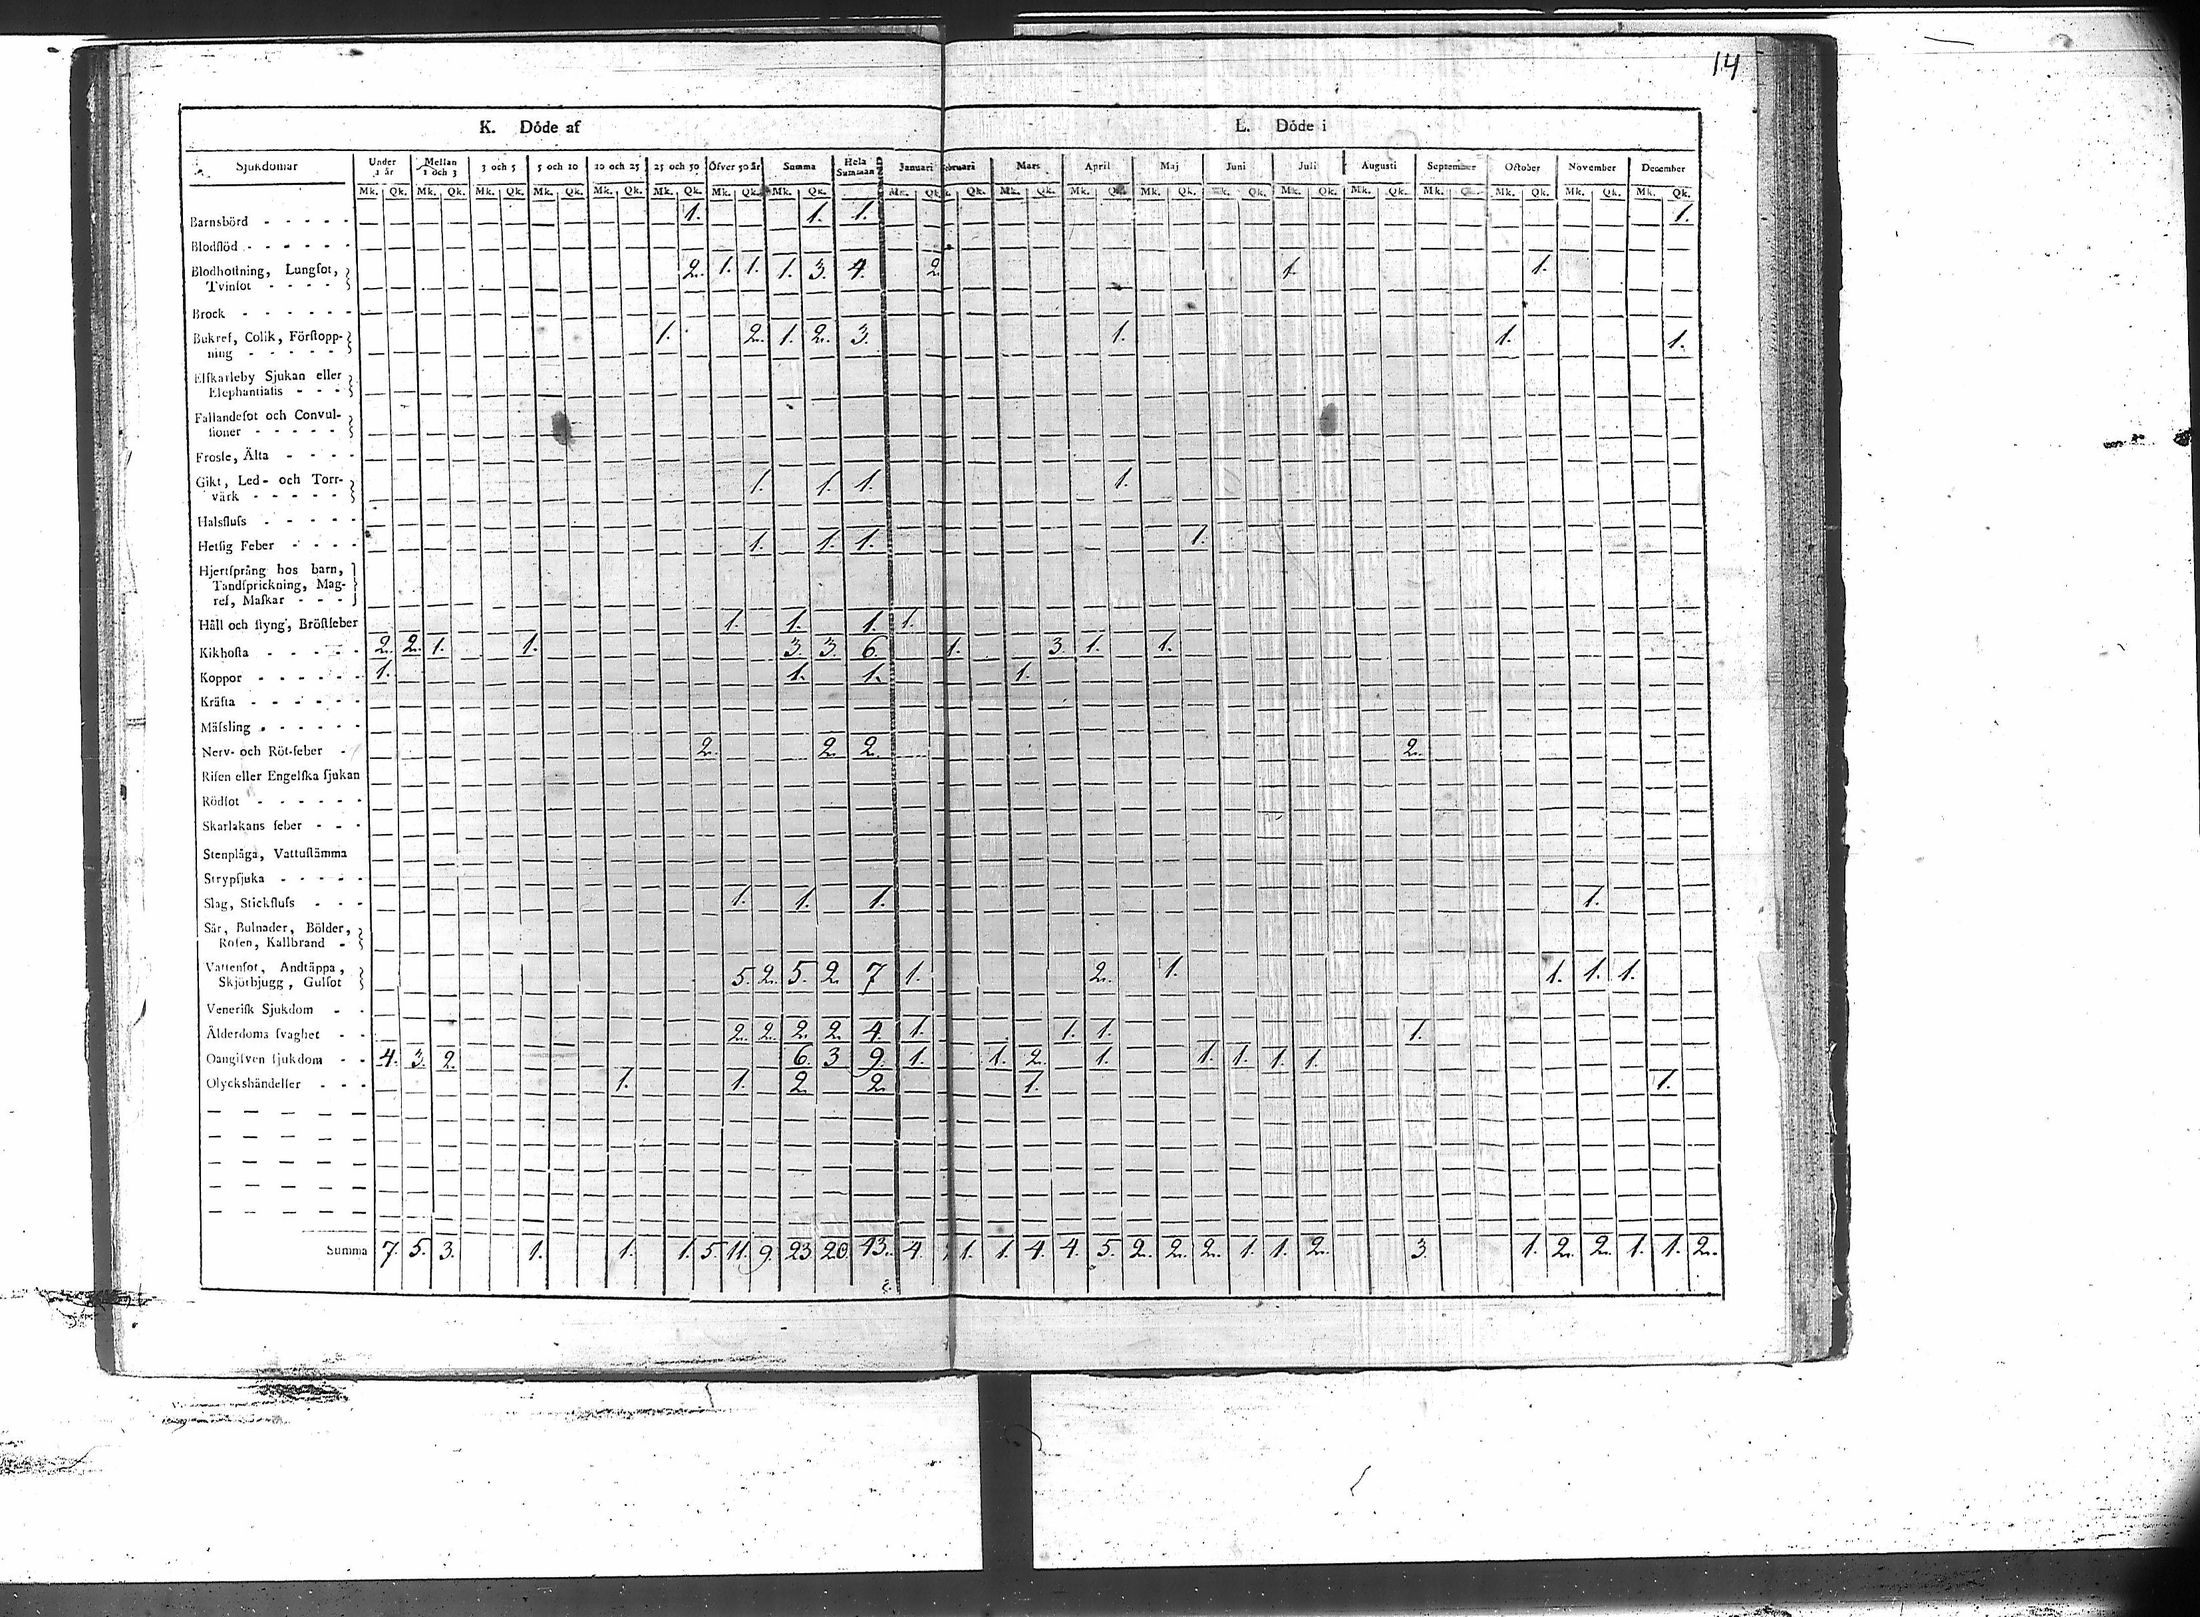 14
K. Döde af
L. Döde i
Sjukdomar Under 1 år Mellan 1 och 3 3 och 5 5 och 10 10 och 25 25 och 50 Öfver 50 år Summa Hela Summan Januari bruari Mars April Maj Juni Juli Augusti September October November December
Mk. Qk. Mk. Qk. Mk. Qk. Mk. Qk. Mk. Qk. Mk. Qk. Mk. Qk. Mk. Qk. Mk. Qk. Qk. Mk. Qk. Mk. Qk. Mk. Qk. Mk. Qk. Mk. Qk. Mk. Qk. Mk. Qk. Mk. Qk. Mk. Qk. Mk. Qk.
Barnsbörd - - - - - 1. 1. 1. 1.
Blodflöd - - - - - -
Blodhostning, Lungsot,
Tvinsot - - - - 2. 1. 1. 1. 3. 4. 2. 1. 1.
Brock - - - - - -
Bukref, Colik, Förstopp-
ning - - - - - 1. 2. 1. 2. 3. 1. 1. 1.
Elfkarleby Sjukan eller
Elephantiasis - - - -
Fallandesot och Convul-
sioner - - - - -
Frossa, Älta - - - -
Gikt, Led- och Torr-
värk - - - - - 1. 1. 1. 1.
Halsfluss - - - - -
Hetsig Feber - - - - 1. 1. 1. 1.
Hjertsprång hos barn,
Tandsprickning, Mag-
ref, Maskar - - -
Håll och styng, Bröstfeber 1. 1. 1. 1.
Kikhosta - - - - - 2. 2. 1. 1. 3. 3. 6. 1. 3. 1. 1.
Koppor - - - - - - 1. 1. 1. 1.
Kräfta - - - - - -
Mässling - - - - - -
Nerv- och Röt-feber - 2. 2. 2. 2.
Risen eller Engelska sjukan
Rödsot - - - - - -
Skarlakans feber - - -
Stenplåga, Vattustämma
Strypsjuka - - - - -
Slag, Stickfluss - - - 1. 1. 1. 1.
Sår, Bulnader, Bölder,
Rosen, Kallbrand -
Vattensot, Andtäppa,
Skjörbjugg, Gulsot 5. 2. 5. 2. 7 1. 2. 1. 1. 1. 1.
Venerisk Sjukdom - -
Ålderdoms svaghet - - 2. 2. 2. 2. 4. 1. 1. 1. 1.
Oangifven sjukdom - - 4. 3. 2. 6. 3 9. 1. 1. 2. 1. 1. 1. 1. 1.
Olyckshändelser - - - 1. 1. 2. 2. 1. 1.
Summa 7. 5. 3. 1. 1. 1. 5. 11. 9. 23 20. 43. 4. 1. 1. 4. 4. 5. 2. 2. 2. 1. 1. 2. 3. 1. 2. 2. 1. 1. 2.